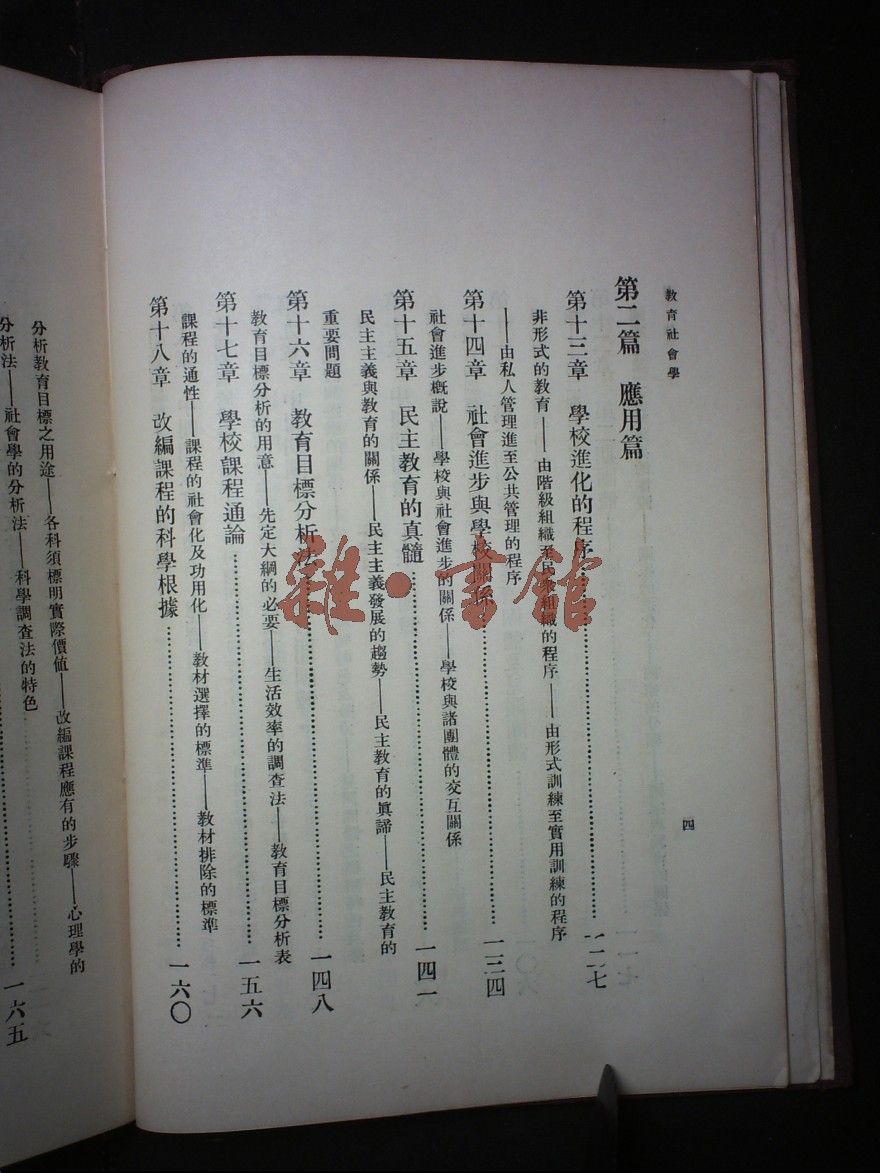 教育社會學
四
第二篇　應用篇
第十三章　學校進化的程序…………一二七
非形式的教育——由階級組織至民衆組織的程序——由形式訓練至實用訓練的程序
——由私人管理進至公共管理的程序
第十四章　社會進步與學校關係…………一三四
社會進步槪說——學校與社會進步的關係——學校與諸團體的交互關係
第十五章　民主教育的真髓…………一四一
民主主義與教育的關係——民主主義發展的趨勢——民主教育的眞諦——民主教育的
重要問題
第十六章　教育目標分析法…………一四八
教育目標分析的用意——先定大綱的必要——生活效率的調查法——教育目標分析表
第十七章　學校課程通論…………一五六
課程的通性——課程的社會化及功用化——教材選擇的標準——教材排除的標準
第十八章　改編課程的科學根據…………一六〇
分析教育目標之用途——各科須標明實際價値——改編課程應有的步驟——心理學的
分析法——社會學的分析法——科學調查法的特色
一六五
雜·書館